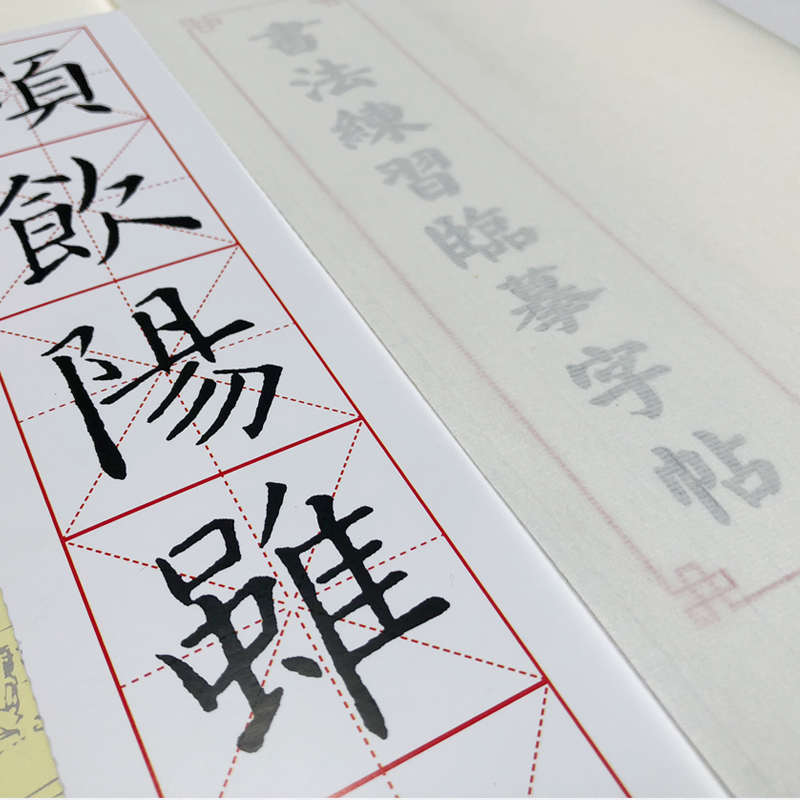 書法練習臨摹字帖
飲陽雖